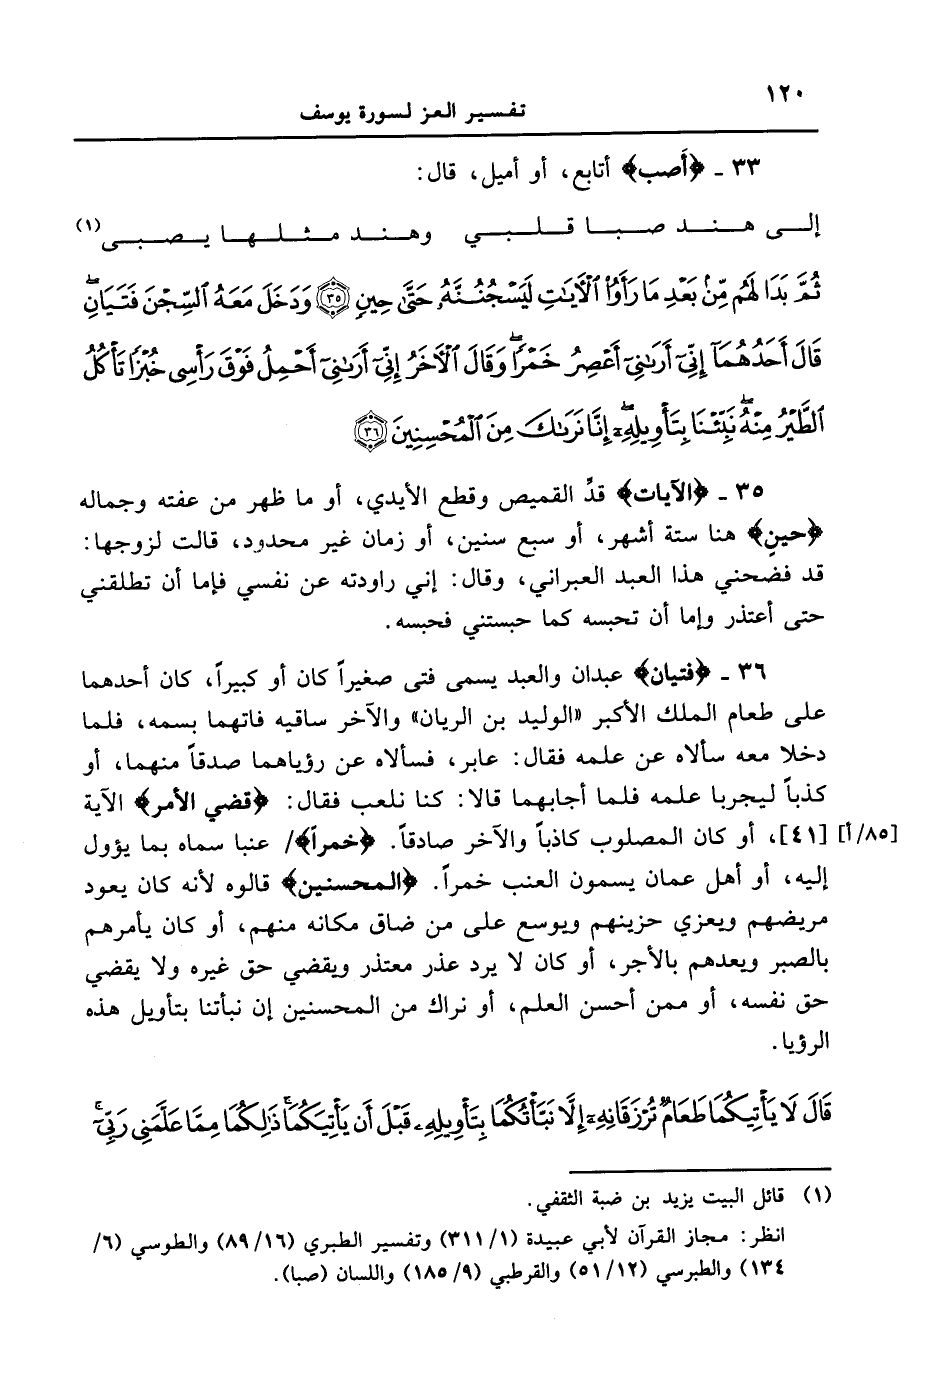 ١٢٠
تفسير العز لسورة يوسف
٣٣ ـ ﴿أَصب﴾ أتابع، أو أميل، قال:
إلــى هــنــد صــبــا قــلــبــي وهــنــد مــثــلــهــا يــصــبــي(١)
ثُمَّ بَدَا لَهُم مِّنۢ بَعْدِ مَا رَأَوُا۟ ٱلْءَايَٰتِ لَيَسْجُنُنَّهُۥ حَتَّىٰ حِينٍ ﴿٣٥﴾ وَدَخَلَ مَعَهُ ٱلسِّجْنَ فَتَيَانِۖ
قَالَ أَحَدُهُمَآ إِنِّىٓ أَرَىٰنِىٓ أَعْصِرُ خَمْرًاۖ وَقَالَ ٱلْءَاخَرُ إِنِّىٓ أَرَىٰنِىٓ أَحْمِلُ فَوْقَ رَأْسِى خُبْزًا تَأْكُلُ
ٱلطَّيْرُ مِنْهُۖ نَبِّئْنَا بِتَأْوِيلِهِۦٓۖ إِنَّا نَرَىٰكَ مِنَ ٱلْمُحْسِنِينَ ﴿٣٦﴾
٣٥ ـ ﴿الآيات﴾ قدِّ القميص وقطع الأيدي، أو ما ظهر من عفته وجماله
﴿حينٍ﴾ هنا ستة أشهر، أو سبع سنين، أو زمان غير محدود، قالت لزوجها:
قد فضحني هذا العبد العبراني، وقال: إني راودته عن نفسي فإما أن تطلقني
حتى أعتذر وإما أن تحبسه كما حبستني فحبسه.
٣٦ ـ ﴿فتيان﴾ عبدان والعبد يسمى فتى صغيراً كان أو كبيراً، كان أحدهما
على طعام الملك الأكبر «الوليد بن الريان» والآخر ساقيه فاتهما بسمه، فلما
دخلا معه سألاه عن علمه فقال: عابر، فسألاه عن رؤياهما صدقاً منهما، أو
كذباً ليجربا علمه فلما أجابهما قالا: كنا نلعب فقال: ﴿قضي الأمر﴾ الآية
[٤١]، أو كان المصلوب كاذباً والآخر صادقاً. ﴿خمراً﴾/ عنبا سماه بما يؤول [٨٥/أ]
إليه، أو أهل عمان يسمون العنب خمراً. ﴿المحسنين﴾ قالوه لأنه كان يعود
مريضهم ويعزي حزينهم ويوسع على من ضاق مكانه منهم، أو كان يأمرهم
بالصبر ويعدهم بالأجر، أو كان لا يرد عذر معتذر ويقضي حق غيره ولا يقضي
حق نفسه، أو ممن أحسن العلم، أو نراك من المحسنين إن نبأتنا بتأويل هذه
الرؤيا.
قَالَ لَا يَأْتِيكُمَا طَعَامٌ تُرْزَقَانِهِۦٓ إِلَّا نَبَّأْتُكُمَا بِتَأْوِيلِهِۦ قَبْلَ أَن يَأْتِيَكُمَاۚ ذَٰلِكُمَا مِمَّا عَلَّمَنِى رَبِّىٓۚ
(١) قائل البيت يزيد بن ضبة الثقفي.
انظر: مجاز القرآن لأبي عبيدة (٣١١/١) وتفسير الطبري (٨٩/١٦) والطوسي (٦/
١٣٤) والطبرسي (٥١/١٢) والقرطبي (١٨٥/٩) واللسان (صبا).